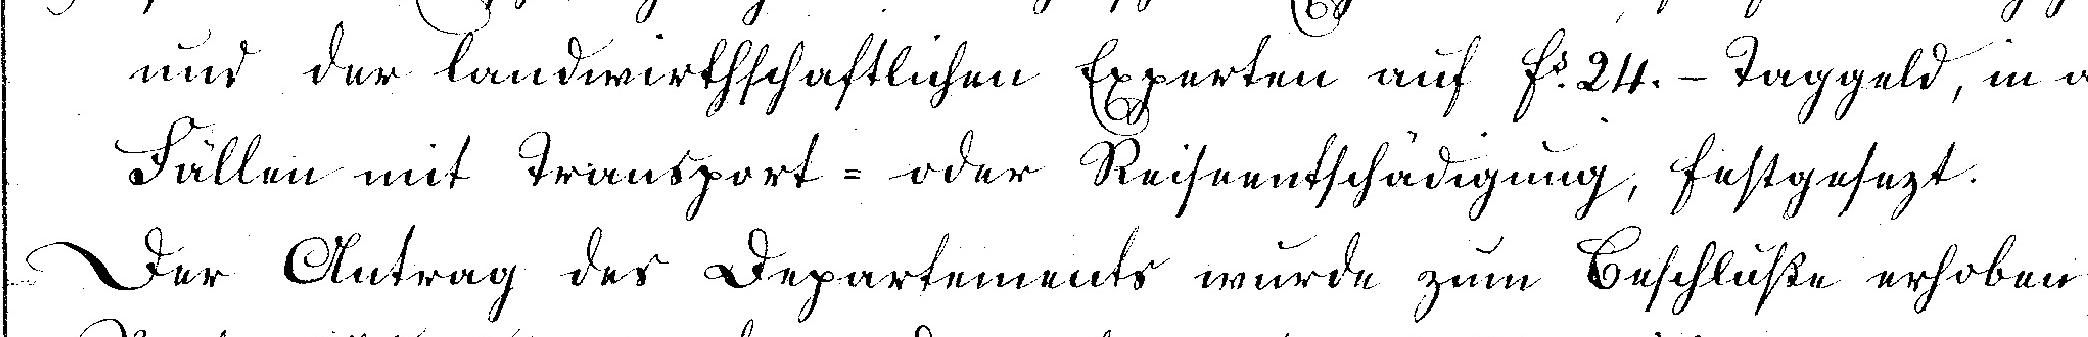 und der landwirthschaftlichen Experten auf fs. 24. – Taggeld, in
Fällen mit Transport= oder Reiseentschädigung, festgesezt.
Der Antrag des Departements wurde zum Beschluße erhoben